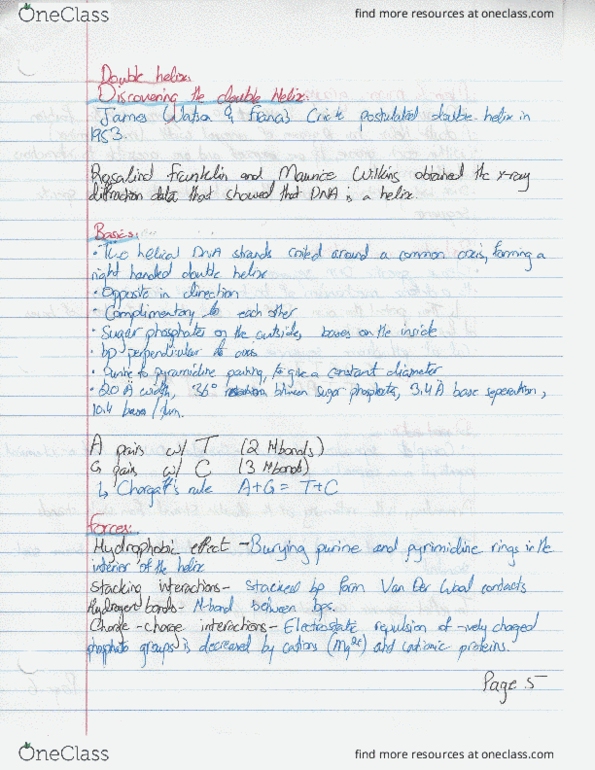 OneClass
find more resources at oneclass.com
Double helix.
Discovering the double Helix:
James Watson & Francis Crick postulated double helix in
1953.
Rosalind Franklin and Maurice Wilkins obtained the x-ray
diffraction data that showed that DNA is a helix.
Basics:
• Two helical DNA strands coiled around a common axis, forming a
right handed double helix
• Opposite in direction
• Complimentary to each other
• Sugar phosphates on the outside, bases on the inside
• bp perpendicular to axis
• Purine to pyramidine pairing, to give a constant diameter
• 20 Å width, 36° rotation btween sugar phosphate, 3.4 Å base seperation,
10.4 bases / turn.
A pairs w/ T (2 Hbonds)
G pairs w/ C (3 Hbonds)
↳ Chargaff's rule A+G = T+C
Forces:
Hydrophobic effect - Burying purine and pyrimidine rings in the
interior of the helix
Stacking interactions - Stacked bp form Van Der Waal contacts
Hydrogen bonds - H-bond between bps.
Charge-charge interactions - Electrostatic repulsion of -ively charged
phosphate groups is decreased by cations (Mg2+) and cationic proteins.
Page 5
OneClass
find more resources at oneclass.com